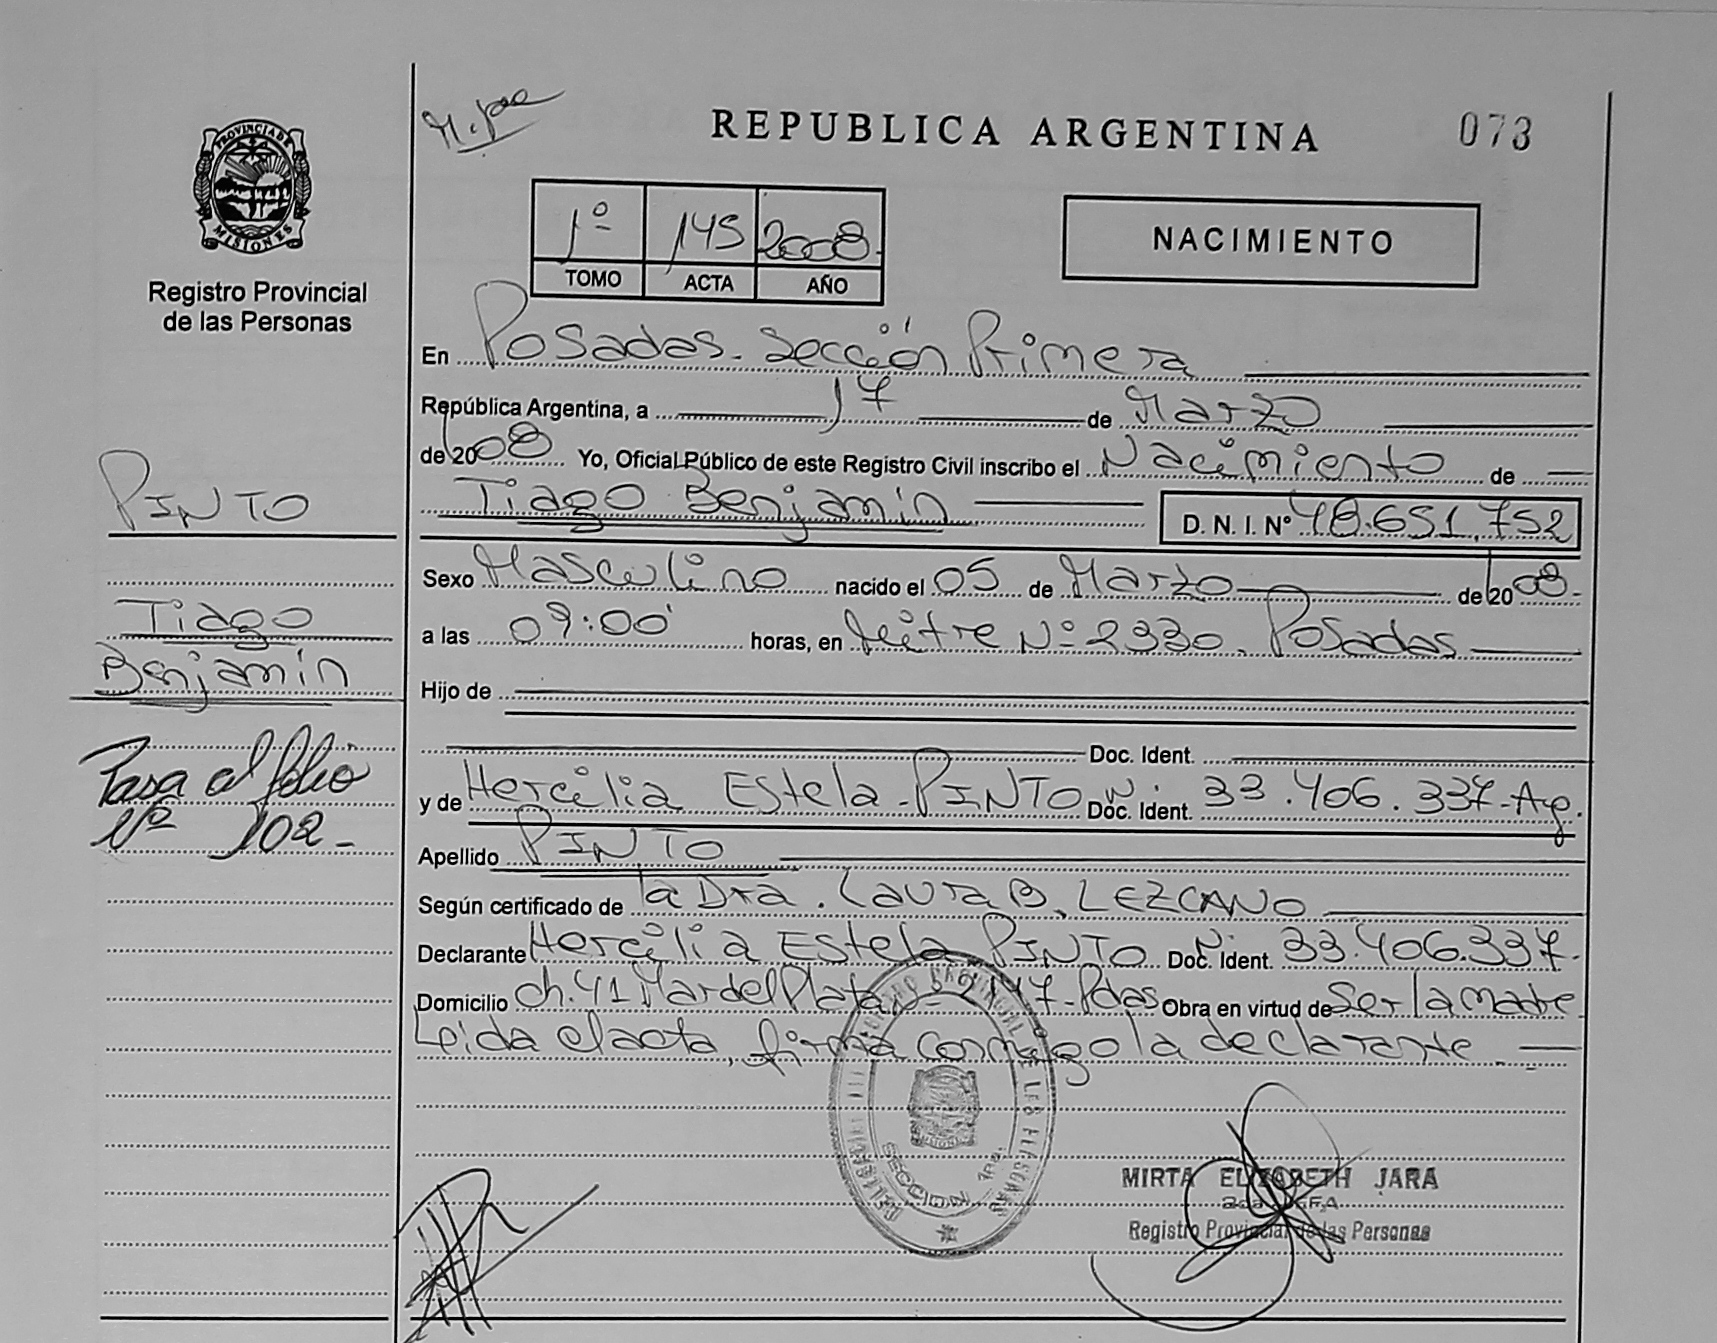 REPUBLICA ARGENTINA
073
PROVINCIA DE
MISIONES
Registro Provincial
de las Personas
1º 145 2008
TOMO ACTA AÑO
NACIMIENTO
En Posadas - Sección Primera
República Argentina, a 17 de Marzo
de 2008 Yo, Oficial Público de este Registro Civil inscribo el Nacimiento de
Tiago Benjamin D. N. I. Nº 48.651.752
Sexo Masculino nacido el 05 de Marzo de 2008.
a las 09:00 horas, en Mitre Nº 2330. Posadas
Hijo de
Doc. Ident.
y de Hercilia Estela - PINTO Doc. Ident. Nº 33.406.337-Ag.
Apellido PINTO
Según certificado de la Dra. Laura B. LEZCANO
Declarante Hercilia Estela PINTO Doc. Ident. Nº 33.406.337.
Domicilio ch. 41 Mar del Plata - Pdas Obra en virtud de Ser la madre
Leida el acta, firma conmigo la declarante.
PINTO
Tiago
Benjamin
Pasa al folio
Nº 102 -
SECCION 1ra.
MIRTA ELIZABETH JARA
Registro Provincial de las Personas